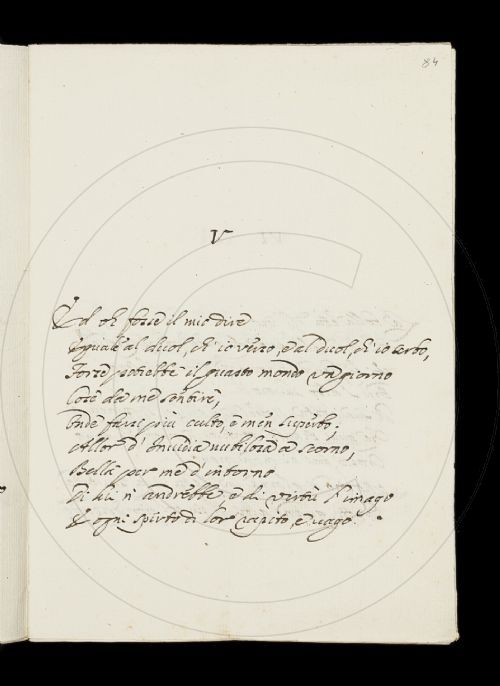 84
V
Dol oh fosse il mio dire
Eguale al duol, ch' io verso, e al duol, ch' io serbo,
Forse potrebbe il guasto mondo un giorno
Cose da me sentire,
Onde farsi più culto, e men superbo;
Allor d' Invidia
Bella per me d' intorno
Di lui n' andrebbe e di virtù l' imago
E ogni spirto di lor rapito, e vago.